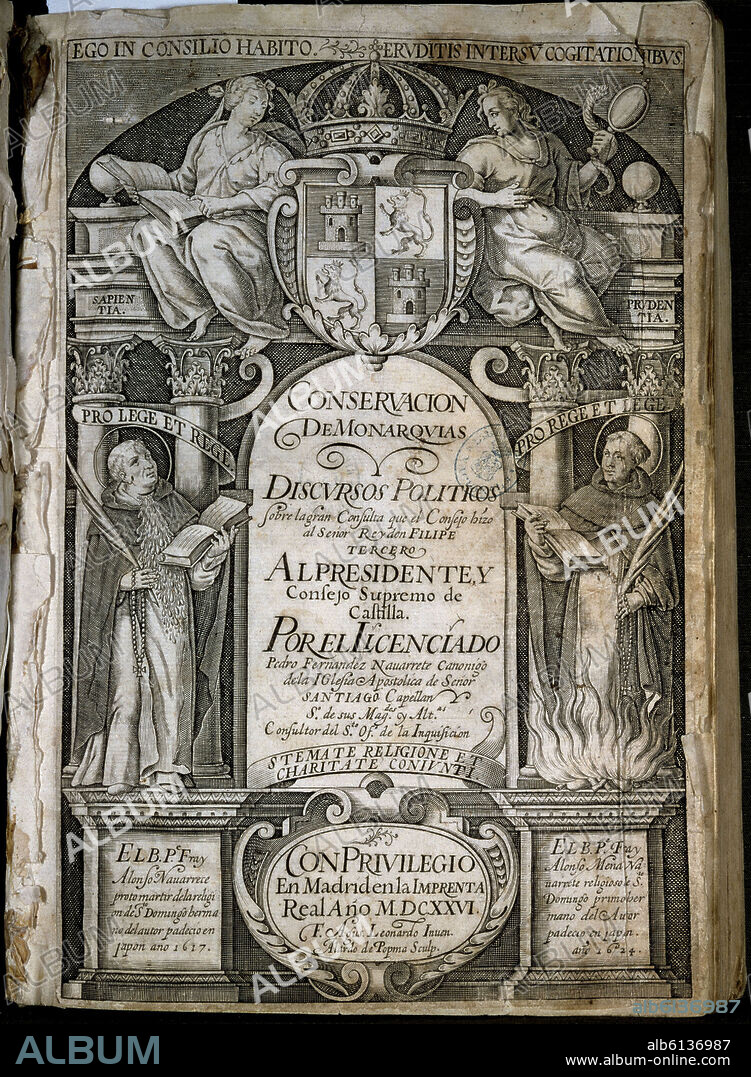 EGO IN CONSILIO HABITO. ERVDITIS INTERSV COGITATIONIBVS.
SAPIEN
TIA.
PRVDEN
TIA.
PRO LEGE ET REGE
PRO REGE ET LEGE
CONSERVACION
DE MONARQVIAS
DISCVRSOS POLITICOS
sobre la gran Consulta que el Consejo hizo
al Señor Rey don FILIPE
TERCERO
AL PRESIDENTE, Y
Consejo Supremo de
Castilla.
POR EL LICENCIADO
Pedro Fernandez Nauarrete Canonigo
de la IGlesia Apostolica de Señor
SANTIAGO Capellan
S.º de sus Mag.des y Alt.as
Consultor del S.to Of.º de la Inquisicion
STEMATE RELIGIONE ET
CHARITATE CONIVNTI
EL B. P.e Fray
Alonso Nauarrece
protomartir de la religi
on de S.to Domingo herma
no del autor padecio en
japon año 1617.
CON PRIVILEGIO
En Madrid en la IMPRENTA
Real Año M.DCXXVI.
Leonardo Inuen.
de Popma Sculp.
EL B. P.e Fray
Alonso Mena Na
uarrete religioso de S.to
Domingo primo her
mano del Autor
padecio en japon.
año 1624.
ALBUM
alb6136987
ALBUM
alb6136987
www.album-online.com